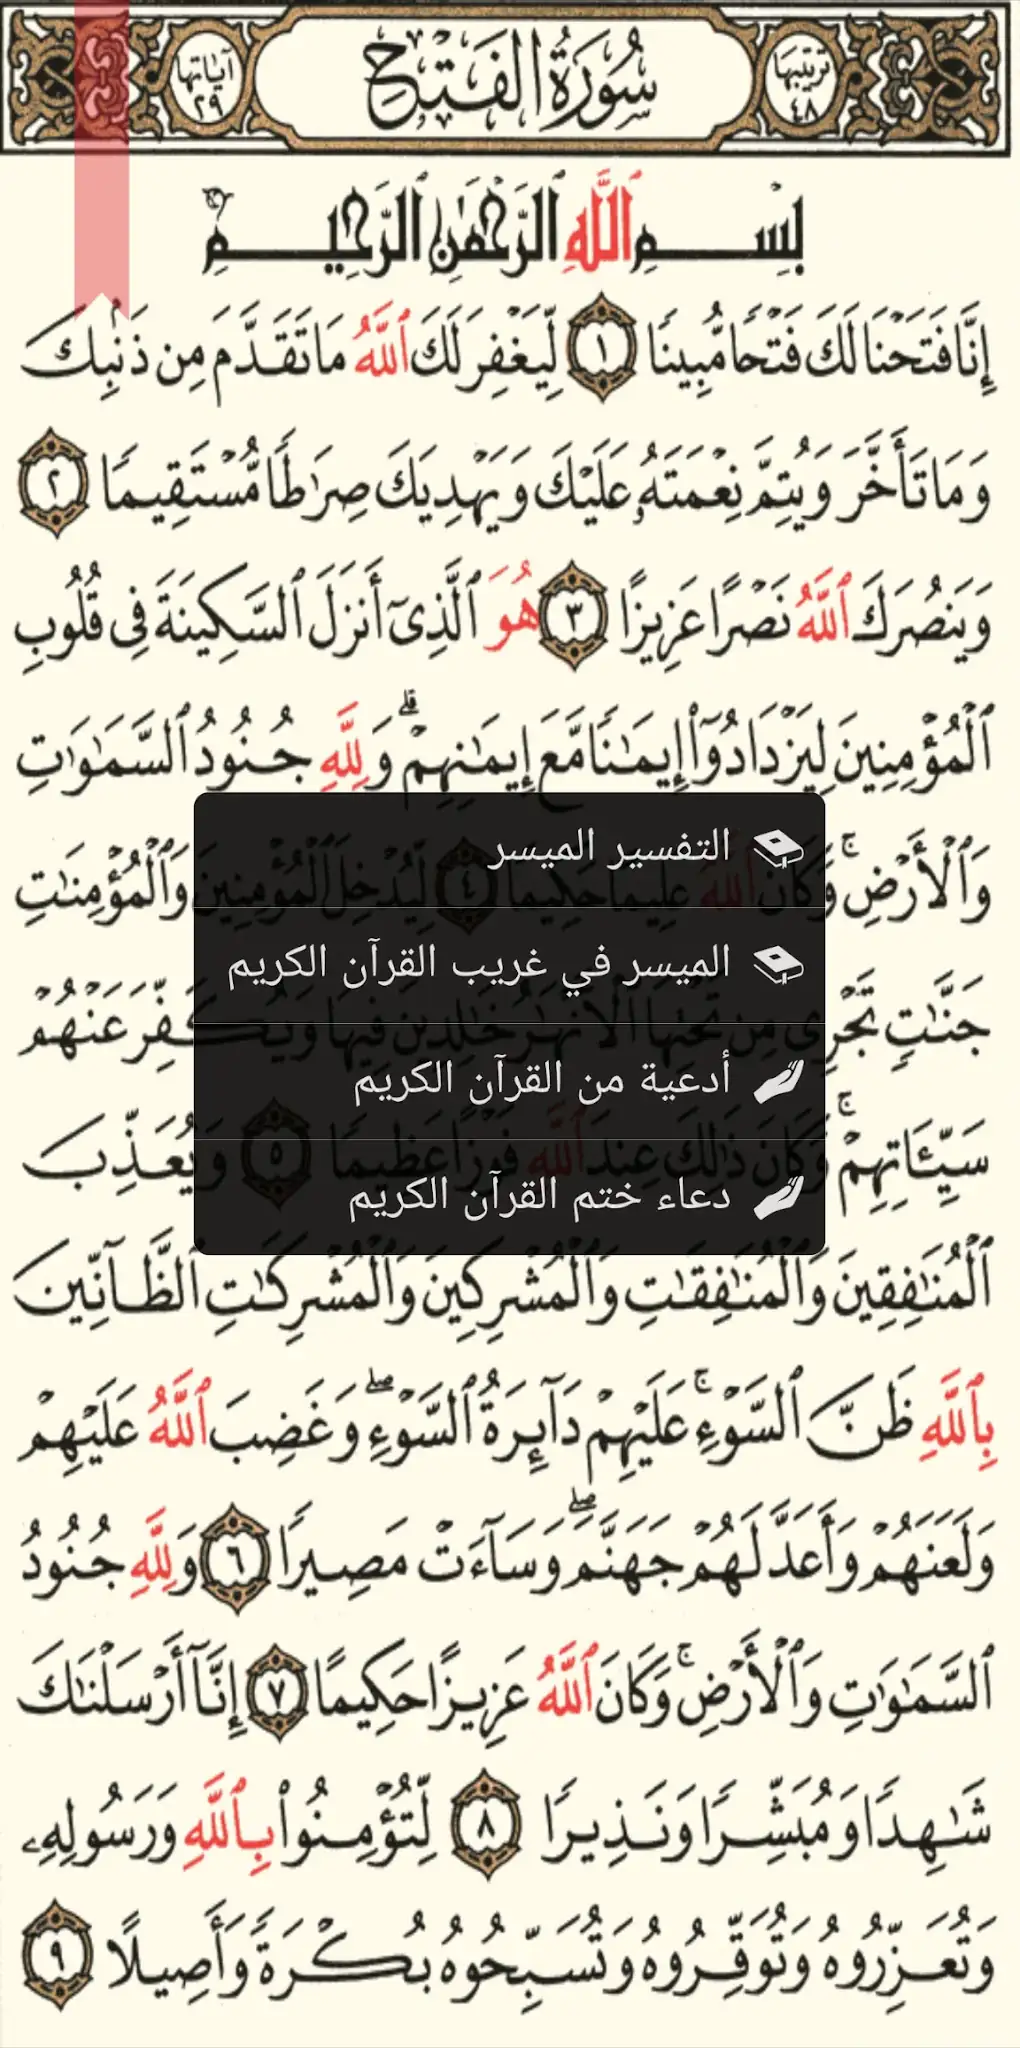 ترتيبها ٤٨
سُورَةُ الفَتْحِ
آياتها ٢٩
بِسْمِ ٱللَّهِ ٱلرَّحْمَٰنِ ٱلرَّحِيمِ
إِنَّا فَتَحْنَا لَكَ فَتْحًا مُّبِينًا ١ لِّيَغْفِرَ لَكَ ٱللَّهُ مَا تَقَدَّمَ مِن ذَنۢبِكَ
وَمَا تَأَخَّرَ وَيُتِمَّ نِعْمَتَهُۥ عَلَيْكَ وَيَهْدِيَكَ صِرَٰطًا مُّسْتَقِيمًا ٢
وَيَنصُرَكَ ٱللَّهُ نَصْرًا عَزِيزًا ٣ هُوَ ٱلَّذِىٓ أَنزَلَ ٱلسَّكِينَةَ فِى قُلُوبِ
ٱلْمُؤْمِنِينَ لِيَزْدَادُوٓا۟ إِيمَٰنًا مَّعَ إِيمَٰنِهِمْ ۗ وَلِلَّهِ جُنُودُ ٱلسَّمَٰوَٰتِ
التفسير الميسر
وَٱلْأَرْضِ ۚ وَكَانَ ٱللَّهُ عَلِيمًا حَكِيمًا ٤ لِّيُدْخِلَ ٱلْمُؤْمِنِينَ وَٱلْمُؤْمِنَٰتِ
الميسر في غريب القرآن الكريم
جَنَّٰتٍ تَجْرِى مِن تَحْتِهَا ٱلْأَنْهَٰرُ خَٰلِدِينَ فِيهَا وَيُكَفِّرَ عَنْهُمْ
أدعية من القرآن الكريم
سَيِّـَٔاتِهِمْ ۚ وَكَانَ ذَٰلِكَ عِندَ ٱللَّهِ فَوْزًا عَظِيمًا ٥ وَيُعَذِّبَ
دعاء ختم القرآن الكريم
ٱلْمُنَٰفِقِينَ وَٱلْمُنَٰفِقَٰتِ وَٱلْمُشْرِكِينَ وَٱلْمُشْرِكَٰتِ ٱلظَّآنِّينَ
بِٱللَّهِ ظَنَّ ٱلسَّوْءِ ۚ عَلَيْهِمْ دَآئِرَةُ ٱلسَّوْءِ ۖ وَغَضِبَ ٱللَّهُ عَلَيْهِمْ
وَلَعَنَهُمْ وَأَعَدَّ لَهُمْ جَهَنَّمَ ۖ وَسَآءَتْ مَصِيرًا ٦ وَلِلَّهِ جُنُودُ
ٱلسَّمَٰوَٰتِ وَٱلْأَرْضِ ۚ وَكَانَ ٱللَّهُ عَزِيزًا حَكِيمًا ٧ إِنَّآ أَرْسَلْنَٰكَ
شَٰهِدًا وَمُبَشِّرًا وَنَذِيرًا ٨ لِّتُؤْمِنُوا۟ بِٱللَّهِ وَرَسُولِهِۦ
وَتُعَزِّرُوهُ وَتُوَقِّرُوهُ وَتُسَبِّحُوهُ بُكْرَةً وَأَصِيلًا ٩